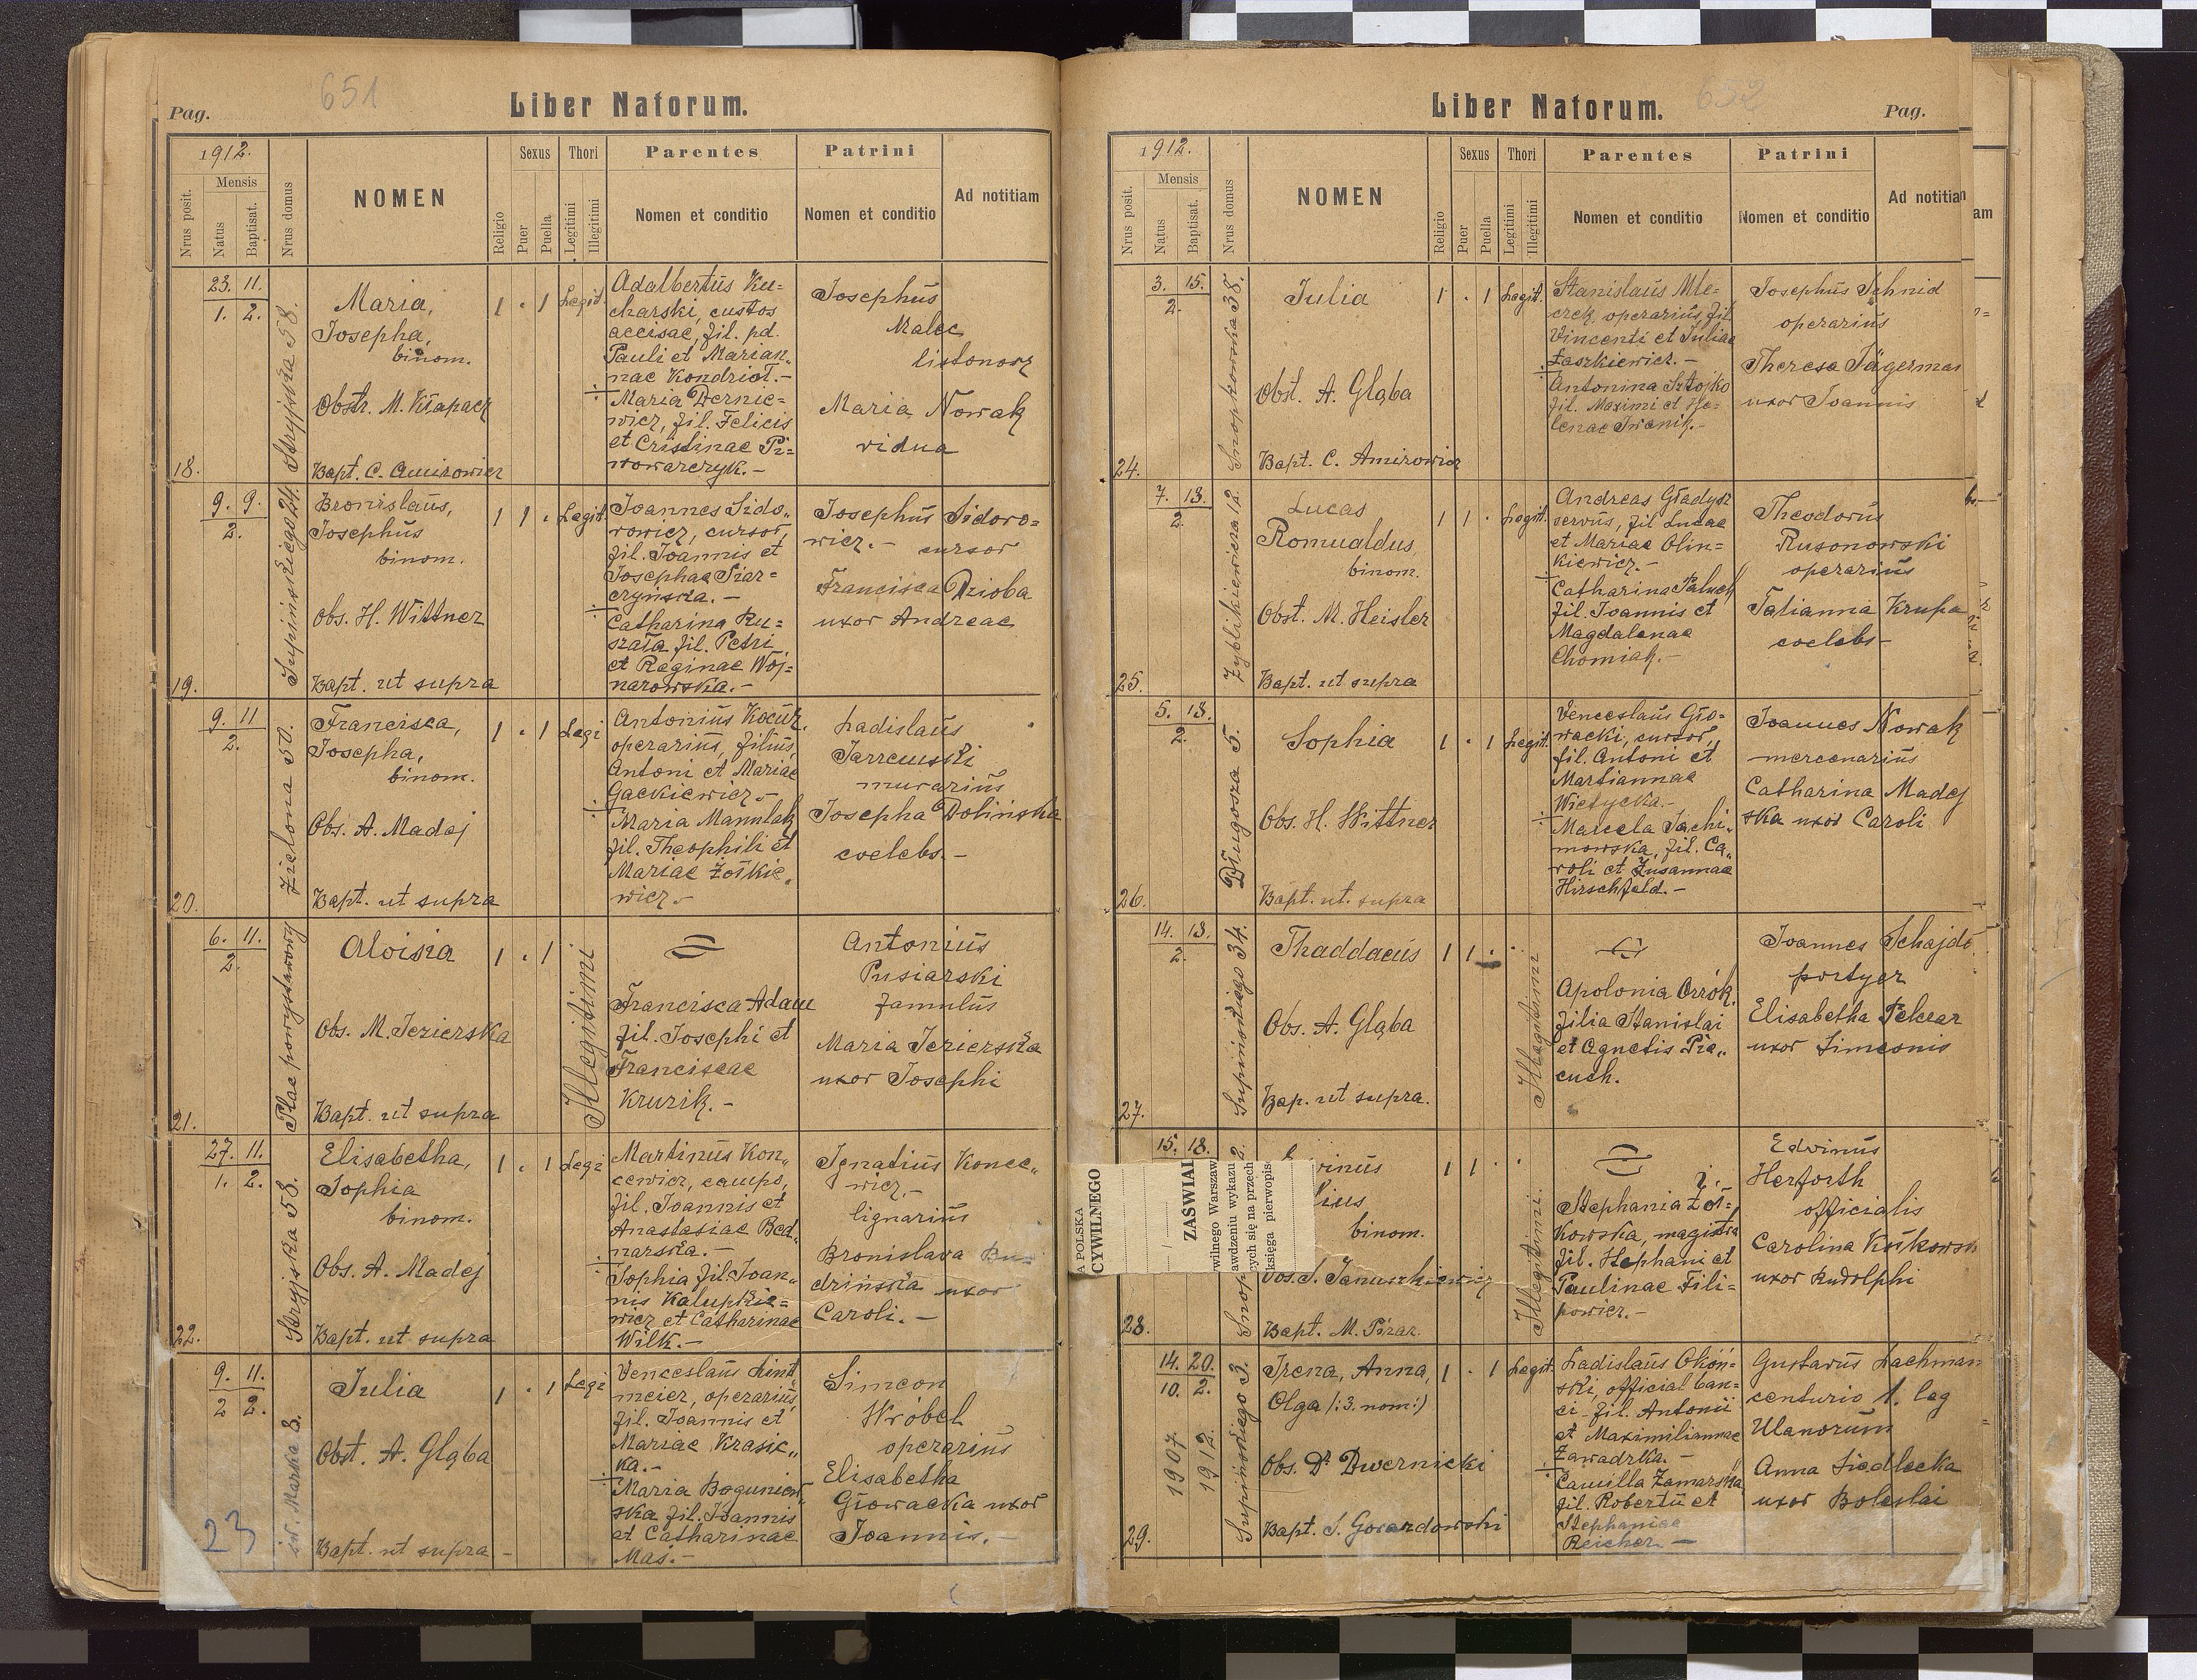 651
Pag.
Liber Natorum.
1912.
Nrus posit.
Mensis
Natus
Baptisat.
Nrus domus
NOMEN
Religio
Sexus
Puer
Puella
Thori
Legitimi
Illegitimi
Parentes
Nomen et conditio
Patrini
Nomen et conditio
Ad notitiam
18.
23. 11.
1. 2.
Stryjska 58.
Maria,
Josepha,
binom.
Obstr. M. Kłapacz
Bapt. C. Amirowicz
1 . 1 Legit.
Adalbertus Ku=
charski, custos
accisae, fil. pd.
Pauli et Marian=
nae Kondrioł.-
Maria Dernie=
wicz, fil. Felicis
et Cristinae Pi=
wowarczyk.-
Josephus
Malec
listonosz
Maria Nowak
vidua
19.
9. 9.
2.
Supinskiego 24.
Bronislaus,
Josephus
binom.
Obs. H. Wittner
Bapt. ut supra
1 1 . Legit.
Joannes Sido„
rowicz, cursor,
fil. Joannis et
Josephae Siar=
czynska.-
Catharina Ru=
szała fil. Petri
et Reginae Woj=
narowska.-
Josephus Sidoro=
wicz.- cursor
Francisca Dzioba
uxor Andreae
20.
9. 11
2.
Zielona 50.
Francisca,
Josepha,
binom.
Obs. A. Madej
Bapt. ut supra
1 . 1 Legi
Antonius Kocur,
operarius, filius
Antoni et Mariae
Gackiewicz.-
Maria Manulak
fil. Theophili et
Mariae Żołkie„
wicz.-
Ladislaus
murarius
Josepha Dolinska
coelebs.-
21.
6. 11.
2.
Plac powystawowy
Aloisia
Obs. M. Jezierska
Bapt. ut supra
1 . 1
Illegitimi
Francisca Adam
fil. Josephi et
Franciscae
Kruzik.-
Antonius
Pusiarski
famulus
Maria Jezierska
uxor Josephi
22.
27. 11.
1. 2.
Stryjska 58.
Elisabetha,
Sophia
binom.
Obs. A. Madej
Bapt. ut supra
1 . 1 Legi
Martinus Kon„
cewicz, caupo,
fil. Joannis et
Anastasiae Bed„
narska.-
Sophia fil. Joan„
nis Kalupkie=
wicz et Catharinae
Wilk.-
Ignatius Konce„
wicz.-
lignarius
Bronislava Bu=
drińska uxor
Caroli.-
23
9. 11.
2 2.
św. Marka 8.
Julia
Obst. A. Głąba
Bapt. ut supra -
1 . 1 Legi
Venceslaus Lint„
meier, operarius,
fil. Joannis et
Mariae Krasic„
ka.-
Maria Boguniew„
ska fil. Joannis
et Catharinae
Mas.-
Simeon
Wróbel
operarius
Elisabetha
Głowacka uxor
Joannis.-
652
Liber Natorum.
Pag.
1912.
Nrus posit.
Mensis
Natus
Baptisat.
Nrus domus
NOMEN
Religio
Sexus
Puer
Puella
Thori
Legitimi
Illegitimi
Parentes
Nomen et conditio
Patrini
Nomen et conditio
Ad notitian
am
24.
3. 15.
2.
Snopkowska 38.
Julia
Obst. A. Głąba
Bapt. C. Amirowicz
1 . 1 Legit.
Stanislaus Mle=
czek, operarius, fil.
Vincenti et Juliae
Łaszkiewicz.-
Antonina Sztojko
fil. Maximi et He=
lenae Iwanik.-
Josephus Schnid
operarius
Theresa Jägerman
uxor Joannis
25.
7. 18.
2.
Zyblikiewicza 12.
Lucas
Romualdus
binom.
Obst. M. Heisler
Bapt. ut supra
1 1 . Legit.
Andreas Gładysz
servus, fil Lucae
et Mariae Olin=
kiewicz.-
Catharina Paluch
fil. Joannis et
Magdalenae
Chomiak.-
Theodorus
Rusonowski
operarius
Tatianna Krupa
coelebs-
26.
5. 18.
2.
Długosza 5.
Sophia
Obs. H. Wittner
Bapt. ut. supra
1 . 1 Legit.
Venceslaus Gło=
wacki, cursor,
fil. Antoni et
Martiannae
Wietycka.-
Marcela Jachi„
mowska, fil. Ca„
roli et Zusannae
Hirschfeld.-
Joannes Nowak
mercenarius
Catharina Madej
ska uxor Caroli
27.
14. 18.
2.
Supinskiego 34.
Thaddaeus
Obs. A. Głąba
Bap. ut supra.
1 1 .
Illegitimi
Apolonia Orrók
filia Stanislai
et Agnetis Pie„
cuch.
Joannes Schajdé
portyer
Elisabetha Pekar
uxor Simeonis
28.
15. 18.
2.
Snop
binom.
Obs. S. Januszkiewicz
Bapt. M. Pirar.
A POLSKA
CYWILNEGO
ZASWIAD
wilnego Warszaw
awdzeniu wykazu
cych się na przech
księga pierwopis
1 1 .
Illegitimi
Stephania Żoł=
kowska, magistra
fil. Stephani et
Paulinae Fili=
powicz.-
Edvinus
Herforth
officialis
Carolina Kołkowsk
uxor Rudolphi
29.
14. 20.
10. 2.
1907
1912.
Supińskiego 3.
Irena, Anna,
Olga /:3. nom:/
Obs. Dr Dwernicki
Bapt. S. Gorardowski
1 . 1 Legit.
Ladislaus Okoń=
ski, official ban=
ci fil. Antonii
et Maximiliannae
Zawadzka.-
Camilla Zamarska
fil. Robertii et
Stephaniae
Reicher.-
Gustavus Lachman
centurio 1. leg
Ulanorum
Anna Siedlecka
uxor Boleslai